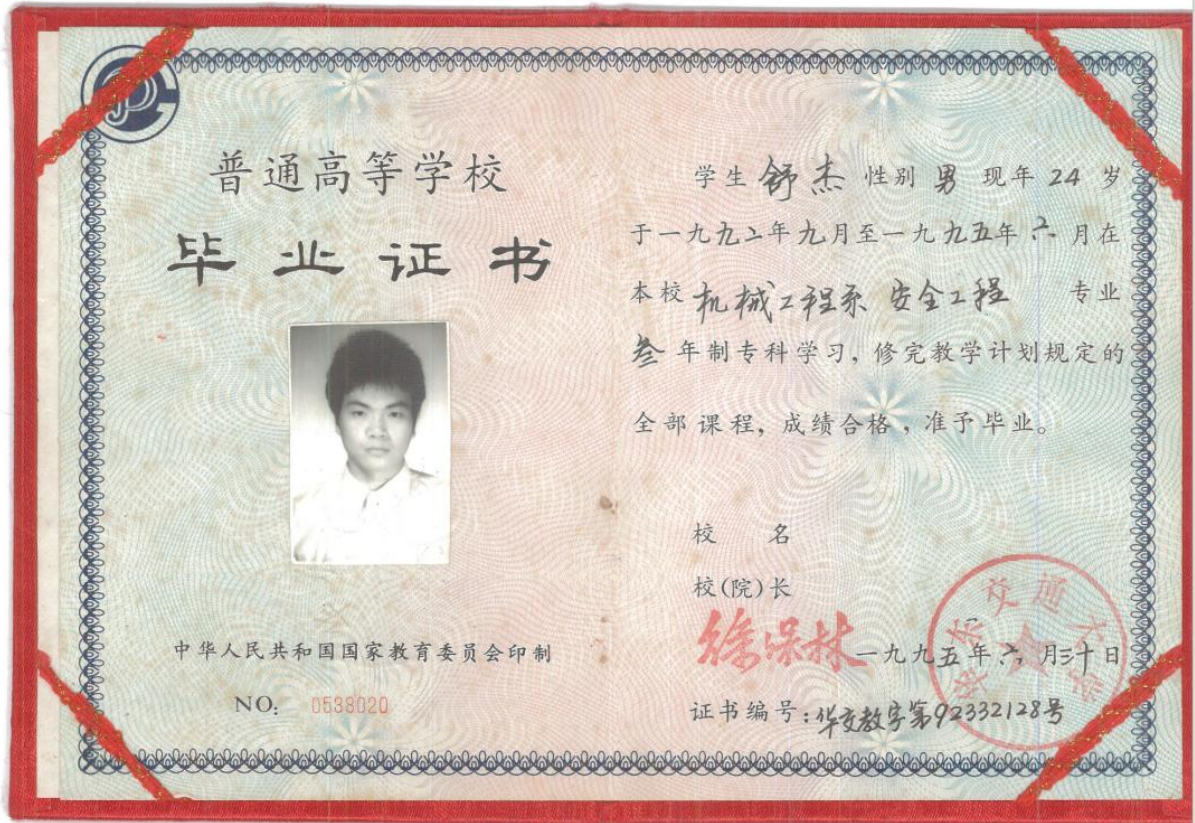 普通高等学校
毕业证书
中华人民共和国国家教育委员会印制
NO: 0538020
学生 舒杰 性别 男 现年 24 岁
于一九九二年九月至一九九五年六月在
本校 机械工程系 安全工程 专业
叁年制专科学习,修完教学计划规定的
全部课程,成绩合格,准予毕业。
校 名
校(院)长
徐保林
华东交通大学
一九九五年六月三十日
证书编号:华交教字第92332128号